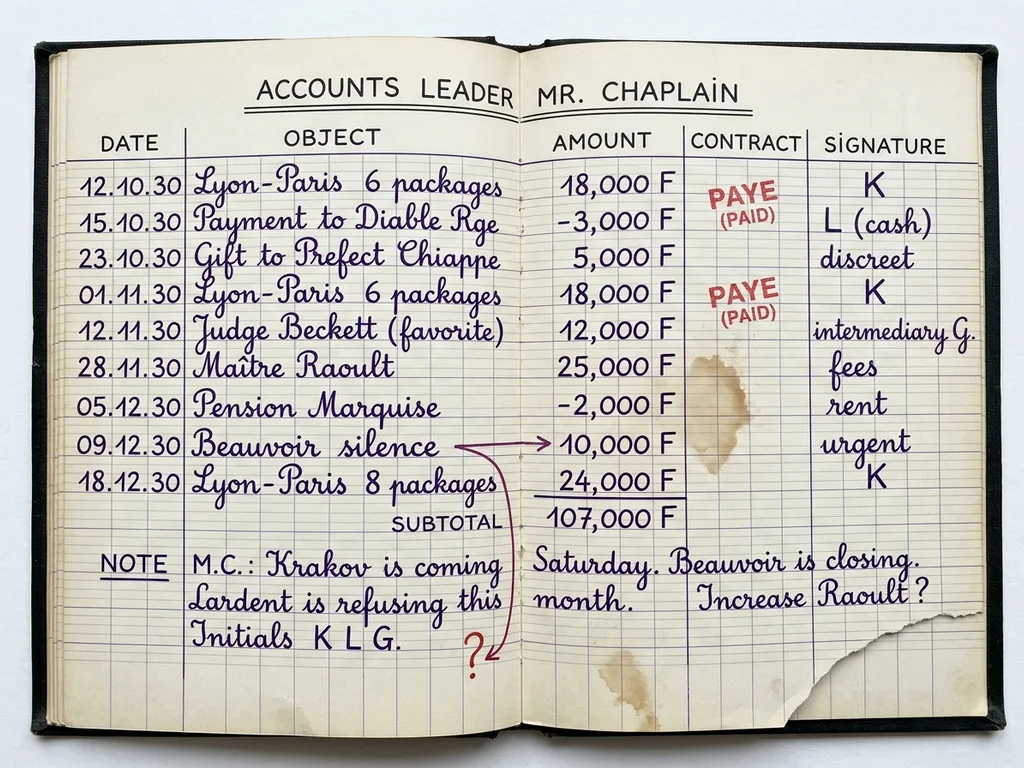 ACCOUNTS LEADER MR. CHAPLAIN
DATE OBJECT AMOUNT CONTRACT SIGNATURE
12.10.30 Lyon-Paris 6 packages 18,000 F PAYE (PAID) K
15.10.30 Payment to Diable Rge -3,000 F L (cash)
23.10.30 Gift to Prefect Chiappe 5,000 F discreet
01.11.30 Lyon-Paris 6 packages 18,000 F PAYE (PAID) K
12.11.30 Judge Beckett (favorite) 12,000 F intermediary G.
28.11.30 Maître Raoult 25,000 F fees
05.12.30 Pension Marquise -2,000 F rent
09.12.30 Beauvoir silence 10,000 F urgent
18.12.30 Lyon-Paris 8 packages 24,000 F K
SUBTOTAL 107,000 F
NOTE M.C.: Krakov is coming Saturday. Beauvoir is closing.
Lardent is refusing this month. Increase Raoult?
Initials K L G. ?